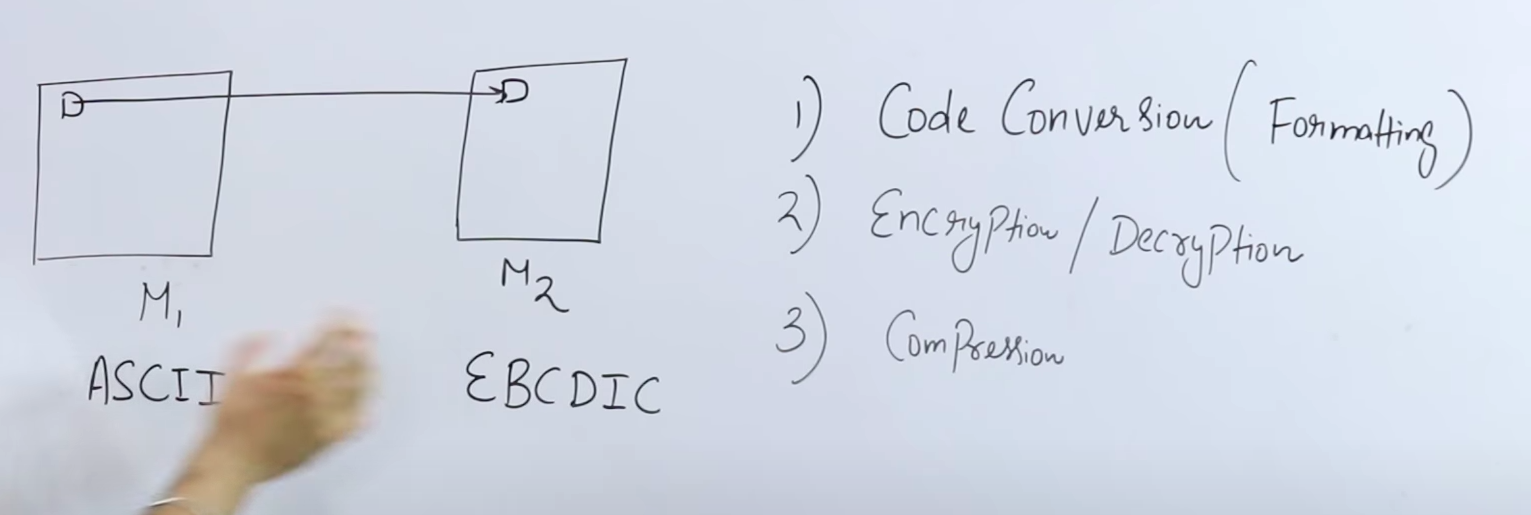 D D
M1 M2
ASCII EBCDIC
1) Code Conversion (Formatting)
2) Encryption / Decryption
3) Compression